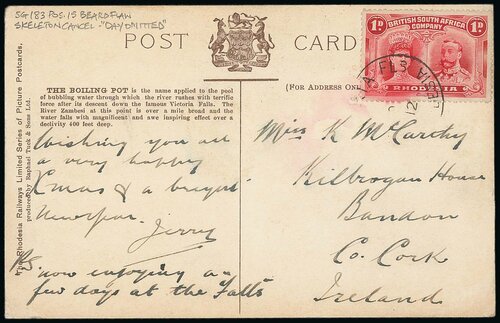 SG183 POS.15 BEARD FLAW
SKELETON CANCEL - "DAY OMITTED"
POST CARD
THE BOILING POT is the name applied to the pool
of bubbling water through which the river rushes with terrific
force after its descent down the famous Victoria Falls. The
River Zambesi at this point is over a mile broad and the
water falls with magnificent and awe inspiring effect over a
declivity 400 feet deep.
Rhodesia Railways Limited Series of Picture Postcards,
produced by Raphael Tuck & Sons Ltd.
Wishing you all
a very happy
Xmas & a bright
New year.
Jerry
PS
now enjoying a
few days at the Falls
(FOR ADDRESS ON
1D BRITISH SOUTH AFRICA 1D
COMPANY
RHODESIA
12
Miss K McCarthy
Kilbrogan House
Bandon
Co. Cork
Ireland